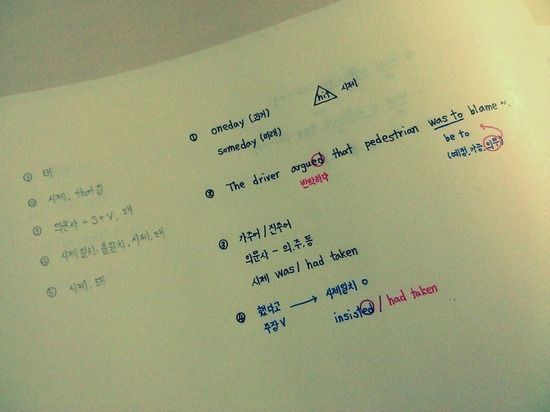 ① 태
② 시제, that절
③ 의문사 + S+V, 태
④ 시제일치·불일치, 시제, 태
⑤ 시제, 태
① oneday (과거) hit 시제
someday (미래)
② The driver argued that pedestrian was to blame~.
반박하다 be to
(예정, 가능, 의무)
③ 가주어/진주어
의문사 - 의, 주, 동
시제 was/ had taken
④ 했다고 → 시제일치 o
주장V insisted / had taken